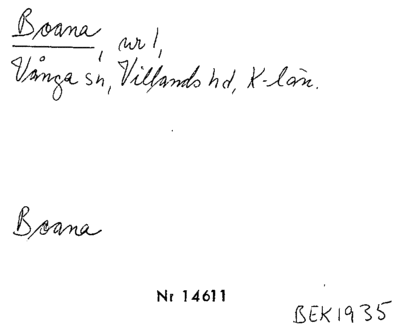 Boana, nr 1,
Vånga sn, Villands hd, K-län.
Boana
Nr 14611
BEK1935